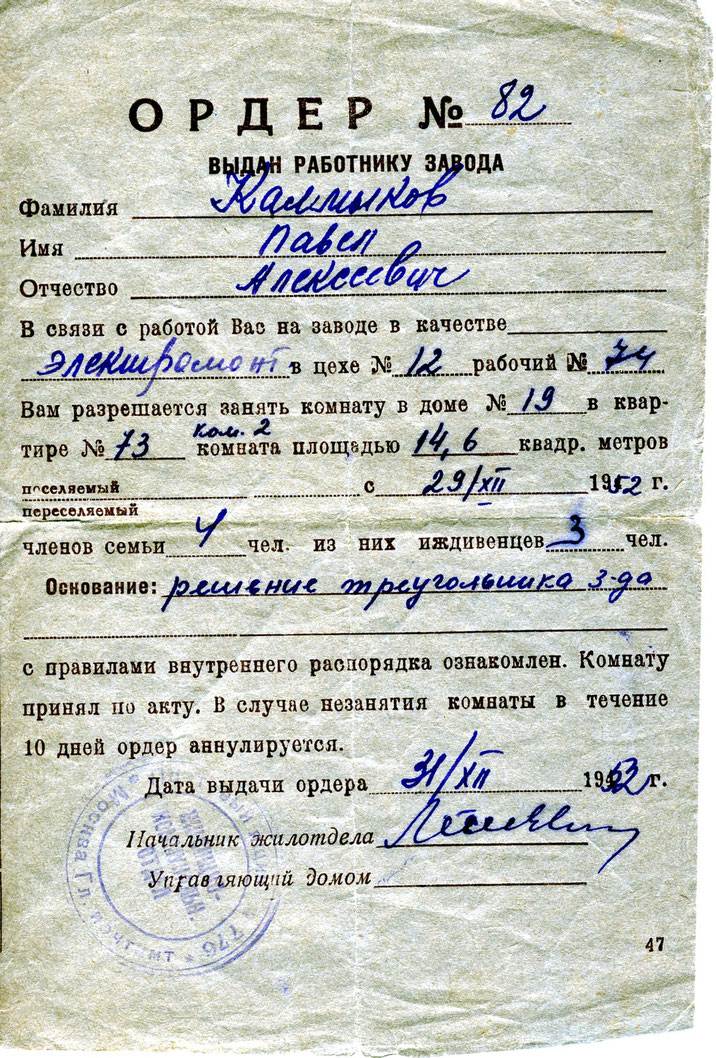 ОРДЕР № 82
ВЫДАН РАБОТНИКУ ЗАВОДА
Фамилия Калмыков
Имя Павел
Отчество Алексеевич
В связи с работой Вас на заводе в качестве
электромонт в цехе № 12 рабочий № 74
Вам разрешается занять комнату в доме № 19 в квар-
тире № 73 ком. 2 комната площадью 14,6 квадр. метров
поселяемый с 29/XII 1952 г.
переселяемый
членов семьи 4 чел. из них иждивенцев 3 чел.
Основание: решение треугольника з-да
с правилами внутреннего распорядка ознакомлен. Комнату
принял по акту. В случае незанятия комнаты в течение
10 дней ордер аннулируется.
Дата выдачи ордера 31/XII 1953 г.
Начальник жилотдела
Управляющий домом
Москва
776
47